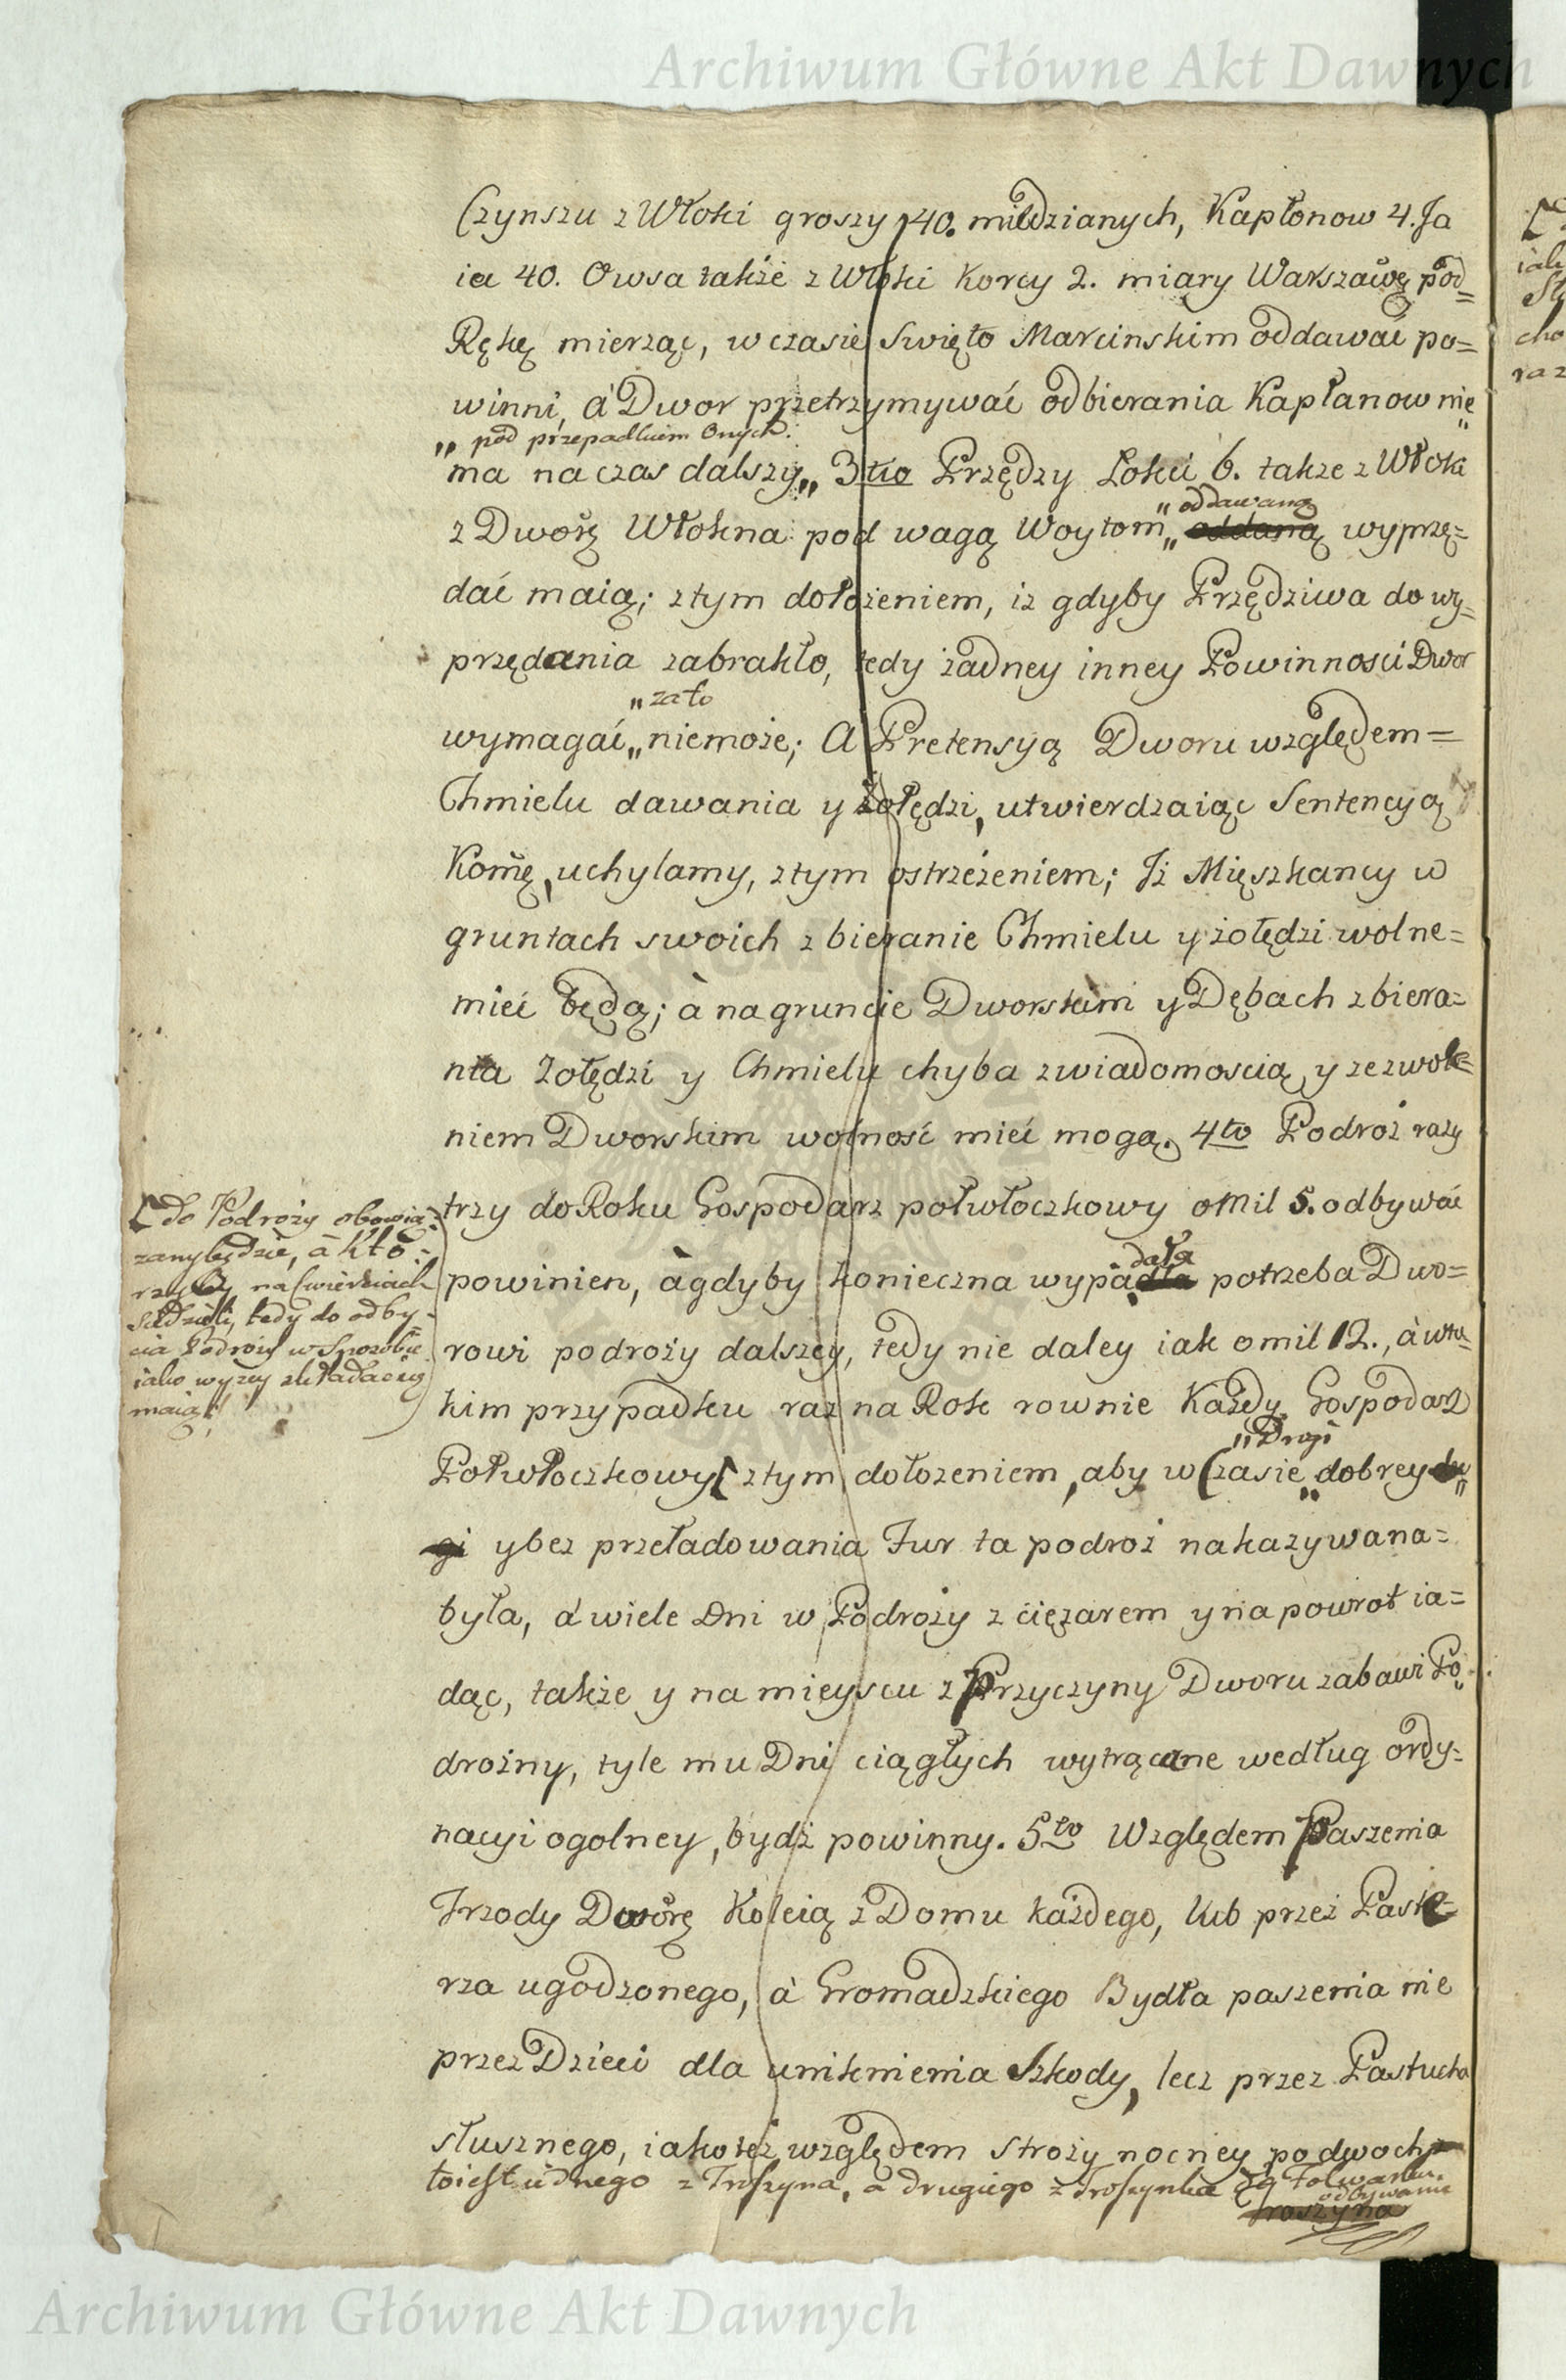 Archiwum Główne Akt Dawnych
Czynszu z Włoki groszy 140. miedzianych, Kapłonow 4. Ja
ia 40. Owsa także z Włoki Korcy 2. miary Warszawę pod=
Rękę mierząc, w czasie Swięto Marcinskim oddawać po=
winni, á Dwor przetrzymywać odbierania Kapłanow nie
„ pod przepadkiem Onych.
ma na czas dalszy„ 3tio Przędzy Łokci 6. także z Włoki
„ oddawaną
z Dworę Włokna pod wagą Woytom„ oddaną wyprzę=
dać maią; z tym dołożeniem, iz gdyby Przędziwa do wy=
przędania zabrakło, tedy żadney inney Powinności Dwor
„ za to
wymagać„ niemoże; A Pretensyą Dworu względem=
Chmielu dawania y żołędzi, utwierdzaiąc Sentencyą
Komę, uchylamy, z tym ostrzeżeniem; Jż Mięszkancy w
gruntach swoich zbieranie Chmielu y żołędzi wolne=
mieć będą; à na gruncie Dworskim y Dębach zbiera=
nia Żołędzi y Chmielu chyba z wiadomoscią y zezwole=
niem Dworskim wolność mieć mogą. 4to Podroż razy
trzy do Roku Gospodarz połwłoczkowy o Mil 5. odbywać
dała
powinien, à gdyby konieczna wypadła potrzeba Dwo=
rowi podroży dalszey, tedy nie daley iak o mil 12., à w ta=
kim przypadku raz na Rok rownie Każdy Gospodarz
„ Drogi
Połwłoczkowy [ z tym dołożeniem, aby w Czasie„ dobrey dro
gi y bez przeładowania Fur ta podroż nakazywana=
była, á wiele Dni w Podroży z ciężarem y na powrot ia=
dąc, także y na mieyscu z Przyczyny Dworu zabawi Po
drożny, tyle mu Dni ciągłych wytrącone według ordy=
nacyi ogolney, bydź powinny. 5to Względem Paszenia
Trzody Dworę Koleią z Domu każdego, lub przez Paste=
rza ugodzonego, à Gromadzkiego Bydła paszenia nie
przez Dzieci dla uniknienia Szkody, lecz przez Pastucha
słusznego, iako też względem stroży nocney po dwoch
to iest iednego z Troszyna, a drugiego z Troszynka do Folwarku
odbywanie
Troszyna
[ do Podroży obowią=
zany będzie, à kto=
rzy by na cwierciach
siedzieli, tedy do odby=
cia Podroży w sposobie
iako wyzey składać się
maią;
Archiwum Główne Akt Dawnych